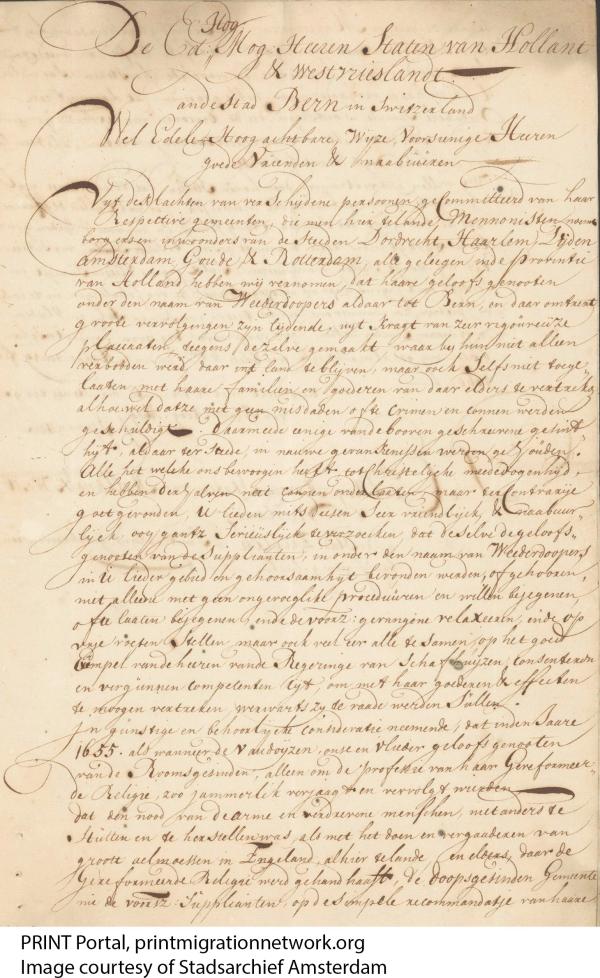 Hog
De Ed: Mog Heeren Staten van Hollant
& westvrieslandt
ande Stad Bern in Switzerland
Wel Edele Hoog achtbare, Wyze, Voorsienige Heeren
goede Vrienden & naabuiren
Uyt de klachten van verscheijdene persoonen, gecommitteerd van haar
Respective gemeenten, die men hier te lande Mennonisten noemt
borgeren en inwoonders van de Steeden Dordrecht, Haarlem, Lijden
Amsterdam, Goude & Rotterdam, alle gelegen in de provintie
van Holland hebben wij vernomen, dat haare geloofs genooten
onder den naam van Weederdoopers aldaar tot Bern, en daar omtrent
groote vervolgingen zyn lijdende, uyt kragt van zeer rigoureuze
placcaten, teegens dezelve gemaakt, waar by hun niet alleen
verbooden werd, daar int land te blyven, maar ook Selfs niet toege
laaten met haare familien en goederen van daar elders te vertrekken
alhoewel datze met geen misdaden ofte Crimen en connen werden
geschuldigt Daarmeede eenige vande booven geschreevene gesint
hyt, aldaar ter Steede, in nauwe gevankenissen werden gehouden.
Alle het welke ons bewoogen heeft tot Christelyke meededogenhyd,
en hebben derhalven niet connen onder Laaten, maar ter Contrarije
goet gevonden, U lieden mits deesen Seer vriendlijck, & Naabuur
lijck ooy gantz Serieuslijck te verzoeken, dat deselve de geloofs
genooten van de Supplianten, in onder den naam van Weederdoopers
in U lieder gebied en gehoorsaamhyt bevonden werden, of gehooren,
met alleene met geen ongereeglte proceduuren en willen bejegenen
ofte laaten bejegenen, ende de voorz: gevangene relaxeeren, ende op
vrye voeten Stellen, maar ook veel eer alle te Samen, op het goed
Exempel vande heeren vande Regeringe van Schafhuijzen, consenteren
en vergunnen Competenten tyt, om met haar goederen & effecten
te moogen vertreken, werwarts zy te raade werden Sullen.
In gunstige en behoorlycke Consideratie neemende, dat inden Jaare
1655. als wanneer de Vaudoyzen, onse en Ulieder geloofs genooten
van de Roomsgesinden, alleen om de professie van haar Gereformeer
de Religie, zoo jammerlik verjaagt en vervolgt wierden
dat den nood van de arme en verdrevene menschen, niet anders te
Stutten en te herstellen was, als met het doen en vergaaderen van
groote aelmoessen in Engeland, alhier te lande en elders, daar de
Gereformeerde Religie werd gehandhaaft, de doopsgesinden Gemeente
nu de voorsz: Supplianten, op de Simpele recommandatje van haare
PRINT Portal, printmigrationnetwork.org
Image courtesy of Stadsarchief Amsterdam